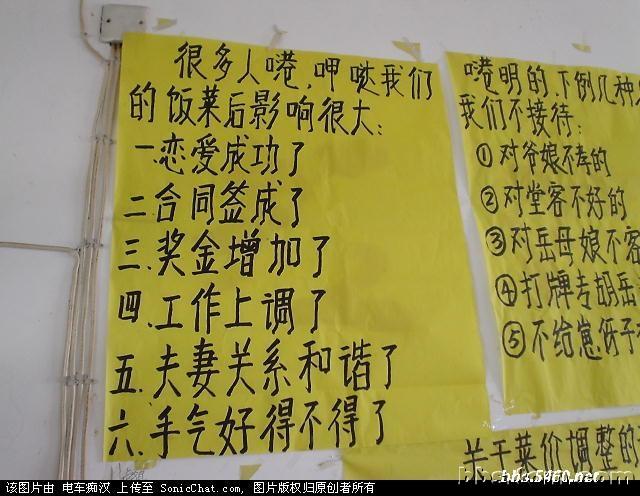 很多人嗯，呷哒我们
的饭菜后影响很大：
一.恋爱成功了
二.合同签成了
三.奖金增加了
四.工作上调了
五.夫妻关系和谐了
六.手气好得不得了
嗯明的.下例几种
我们不接待：
①对爷娘不孝的
②对堂客不好的
③对岳母娘不客
④打牌专胡岳
⑤不给崽伢子
关于菜价调整的
bbs.5460.net
该图片由 电车痴汉 上传至 SonicChat.com, 图片版权归原创者所有